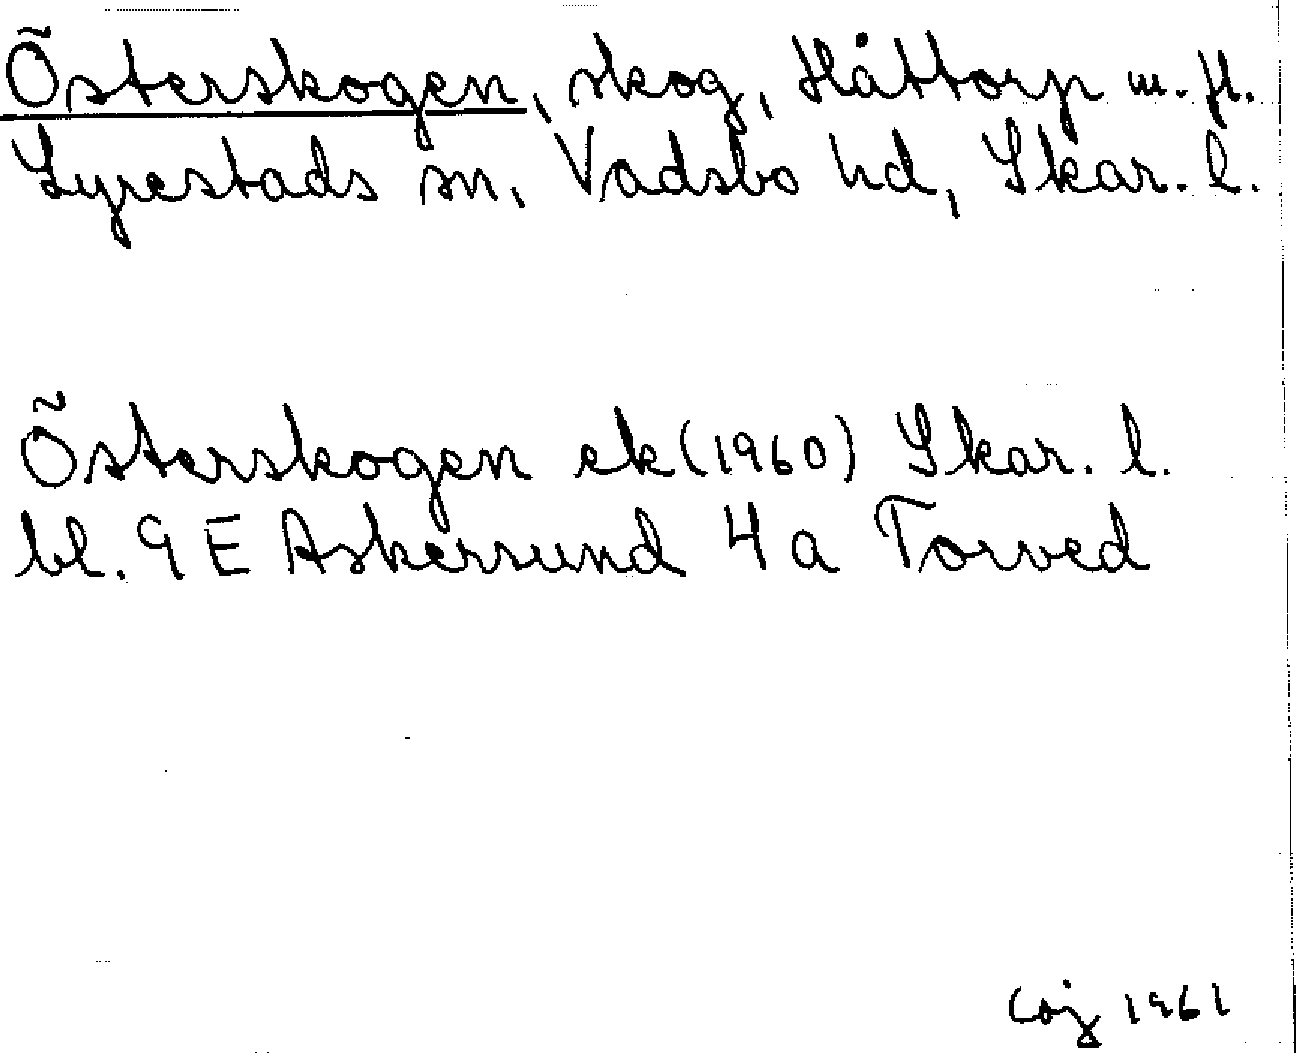 Österskogen, skog, Håttorp m. fl.
Lyrestads sn, Vadsbo hd, Skar. l.
Österskogen ek (1960) Skar. l.
bl. 9 E Askersund 4 a Torved
1961